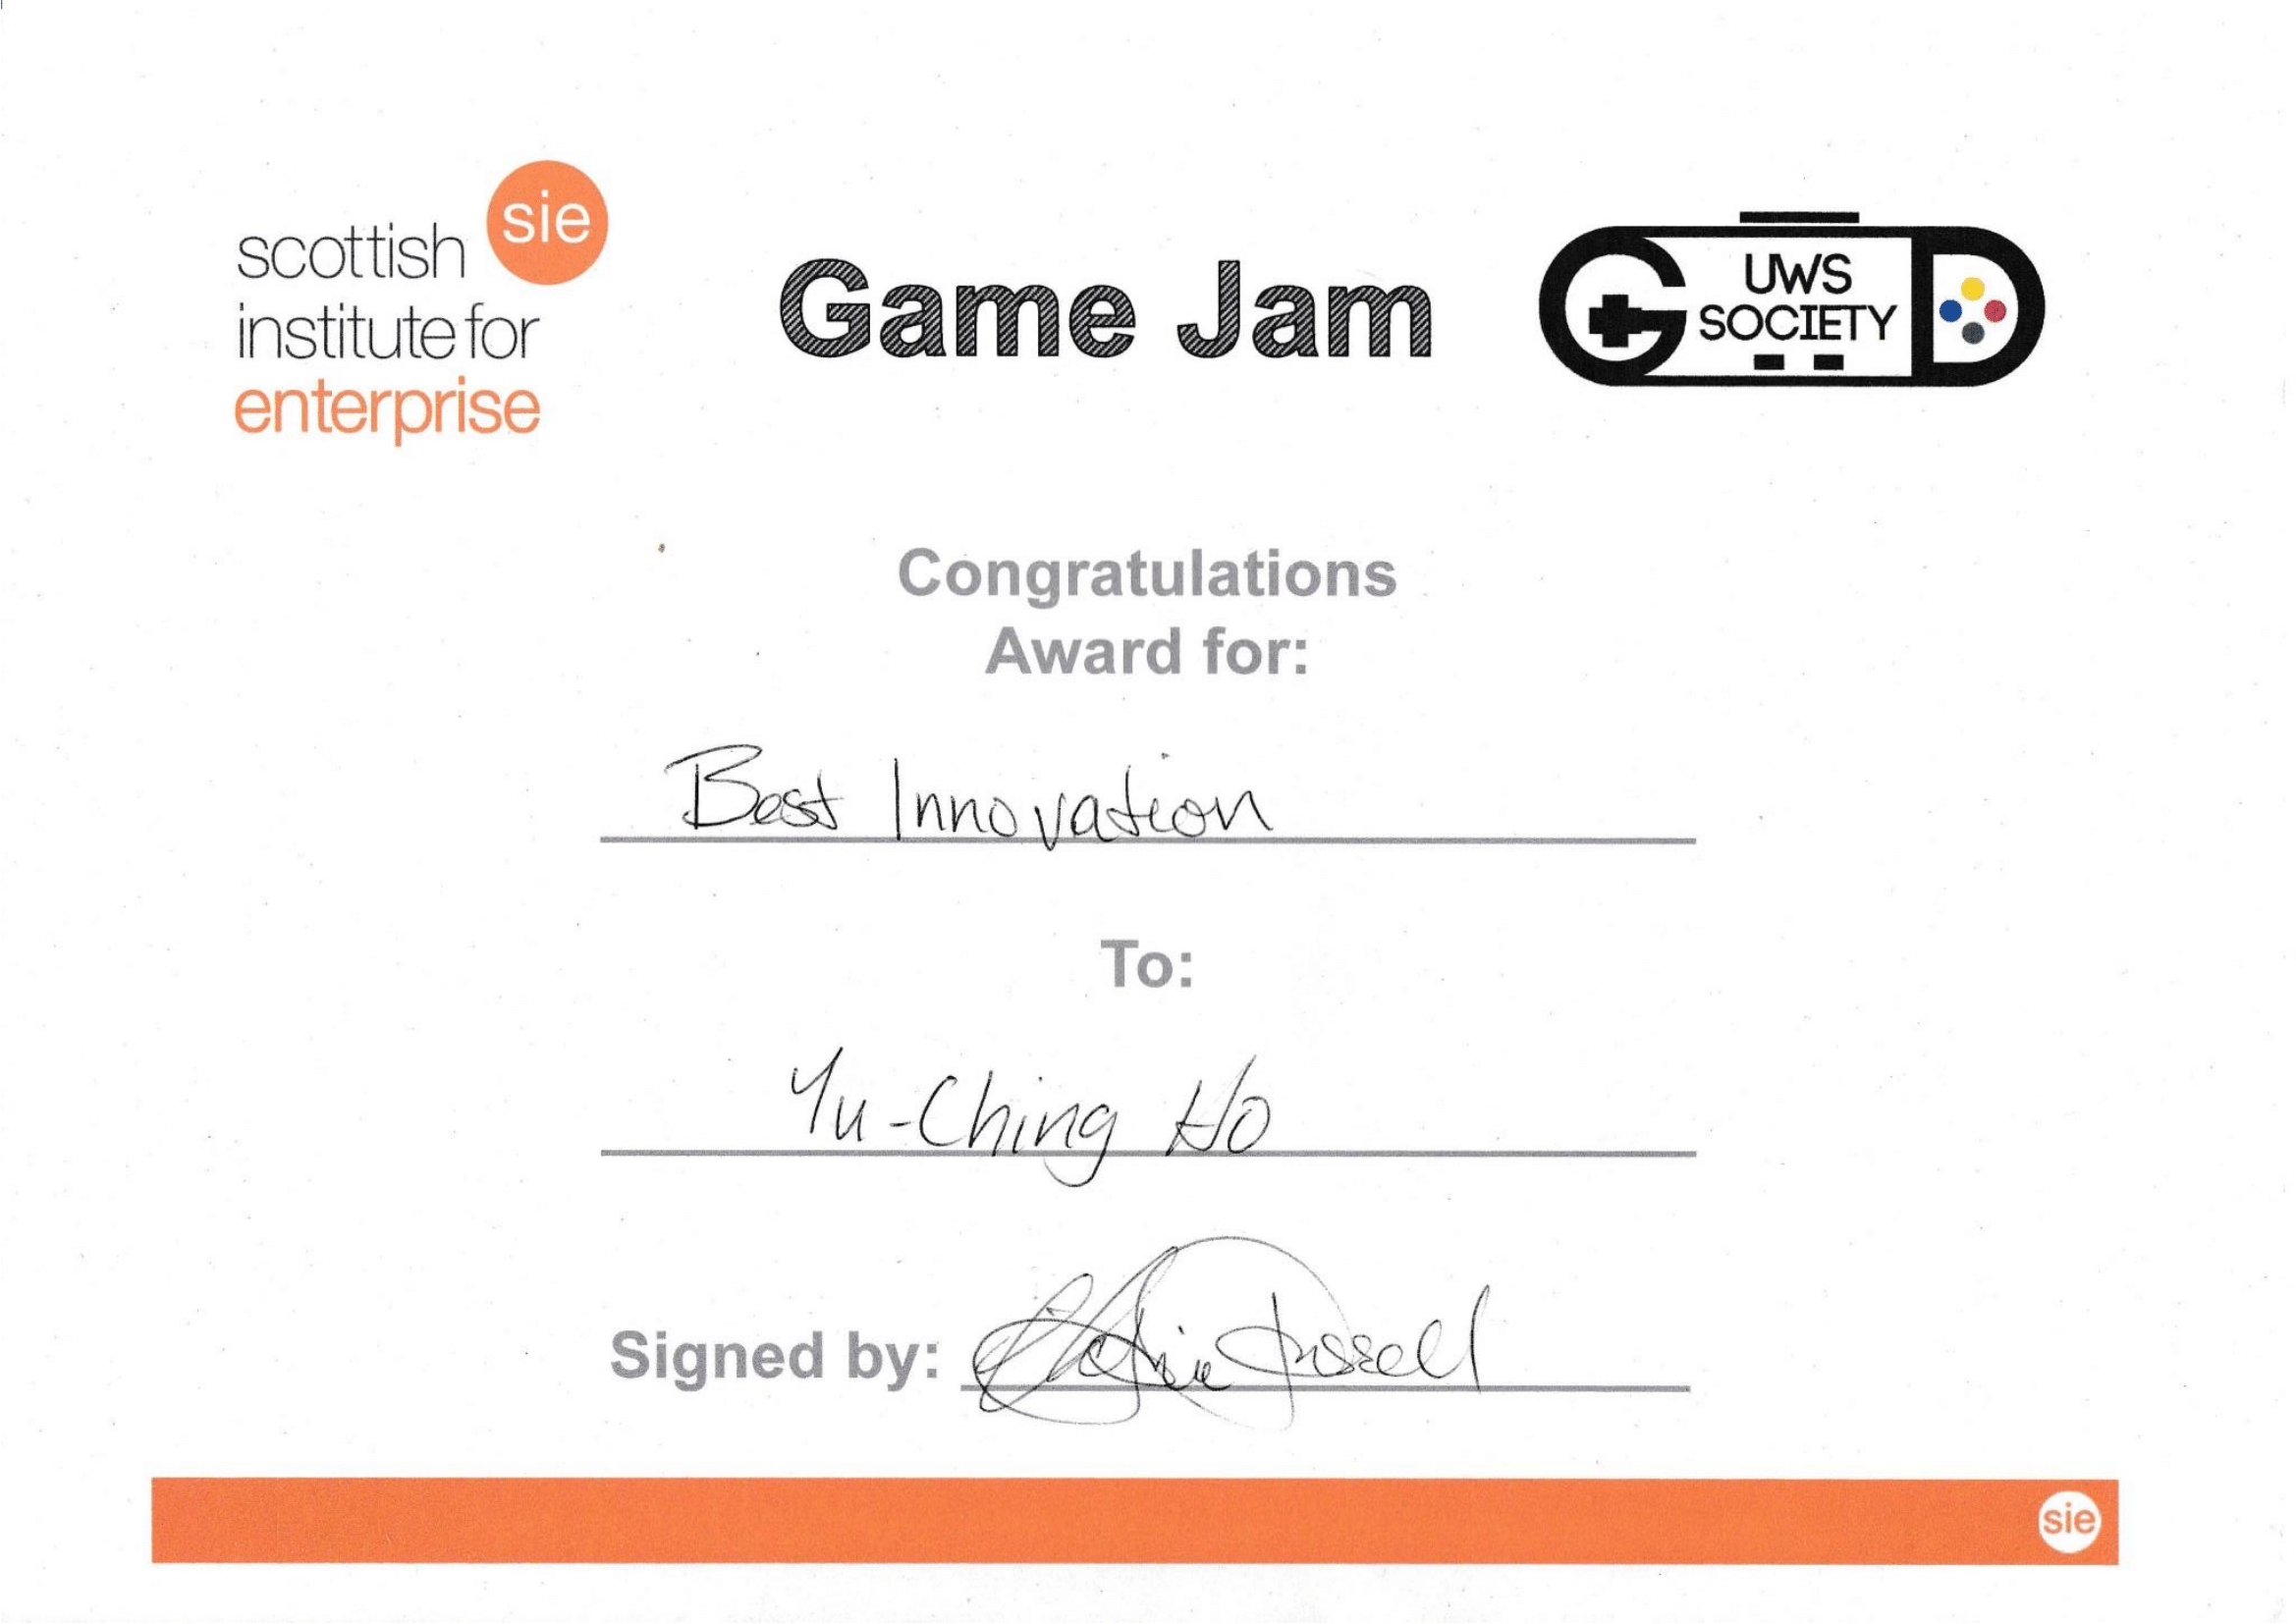 scottish
institute for
enterprise
sie
Game Jam
G UWS D
SOCIETY
Congratulations
Award for:
Best Innovation
To:
Yu-Ching Ho
Signed by:
sie